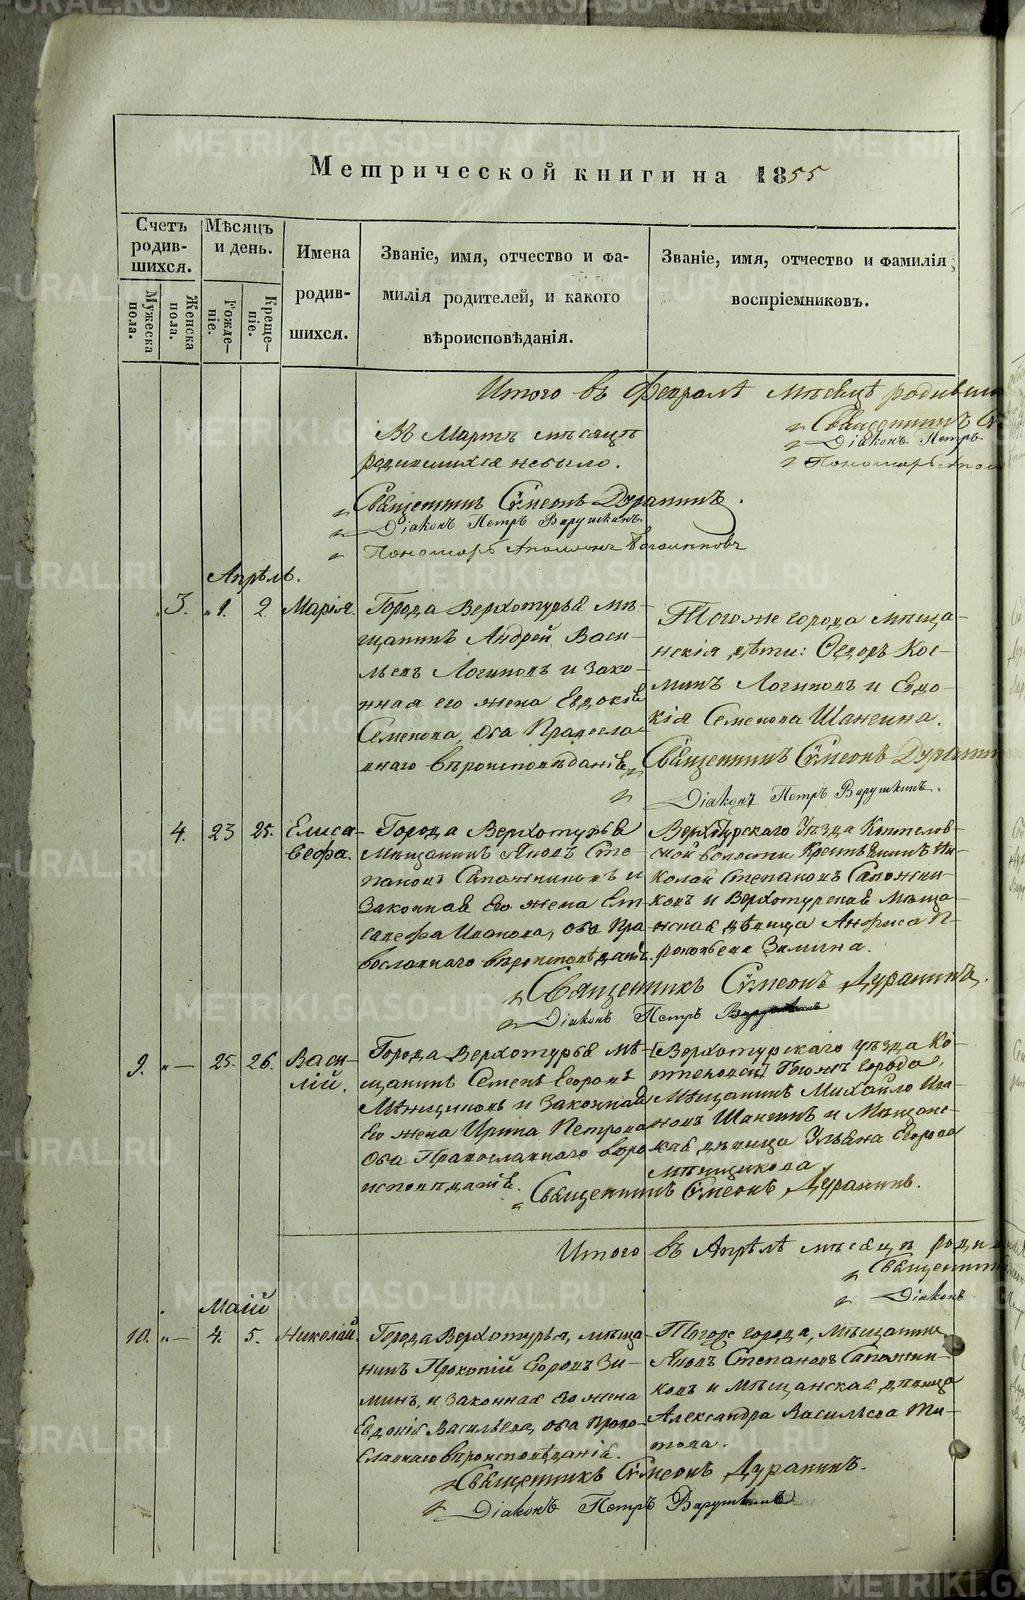 Метрической книги на 1855
Счетъ родив-шихся.
Мѣсяцъ и день.
Имена родив-шихся.
Званіе, имя, отчество и фа-
милія родителей, и какого
вѣроисповѣданія.
Званіе, имя, отчество и фамилія
воспріемниковъ.
Мужеска пола.
Женска пола.
Рожде-ніе.
Креще-ніе.
Итого въ Февралѣ мѣсяцѣ родивши
Священникъ
Діаконъ Петръ
Пономарь
Въ Мартѣ мѣсяцѣ
родившихся небыло.
Священникъ Сѵмеонъ Дуранинъ.
Діаконъ Петръ Варушкинъ.
Пономарь
Апрѣль.
3. 1. 2 Марія.
Города Верхотурья мѣ-
щанинъ Андрей Васи-
льевъ Логиновъ и зако-
нная его жена Евдокія
Семенова, оба Правосла-
внаго вѣроисповѣданія
Тогоже города мѣща-
нскія дѣти: Ѳедоръ Кос-
минъ Логиновъ и Евдо-
кія Семенова Шангина.
Священникъ Сѵмеонъ Дуранин
Діаконъ Петръ Варушкинъ.
4. 23 25. Елиса-
вефа.
Города Верхотурья
Мѣщанинъ Яковъ Сте-
пановъ Сапожниковъ и
Законная Его жена Ел
савефа Иванова, оба Пра
вославнаго вѣроисповѣдані.
Верхотурскаго Уѣзда Коптелов-
ской волости Крестьянинъ Ни-
колай Степановъ Сапожни-
ковъ и Верхотурская Мѣща-
нская дѣвица Анфиса П-
рокопьева Зимина.
Священникъ Сѵмеонъ Дуранинъ.
Діаконъ Петръ Варушкинъ
9. — 25. 26. Васи-
лій.
Города Верхотурья мѣ-
щанинъ Семенъ Егоровъ
Мѣнщиковъ и Законная
Его жена Ирина Петрова
Оба Православнаго вѣро
исповѣданія.
Верхотурскаго уѣзда
города,
Мѣщанинъ Михайло Ива
новъ Шангинъ и Мѣщанс-
кая дѣвица Ульяна Егорова
Мѣнщикова.
Священникъ Сѵмеонъ Дуранинъ.
Итого въ Апрѣлѣ мѣсяцѣ роди
Священни
Діаконъ
Маій
10. — 4. 5. Николай.
Города Верхотурья, мѣща-
нинъ Прокопій Егоровъ Зи-
минъ, и Законная Его жена
Евдокія Васильева, оба Право-
славнаго вѣроисповѣданія.
Тогоже города, мѣщанинъ
Яковъ Степановъ Сапожни-
ковъ и мѣщанская дѣвица
Александра Васильева Ти-
това.
Священникъ Сѵмеонъ Дуранинъ.
Діаконъ Петръ Варушкинъ
METRIKI.GASO-URAL.RU